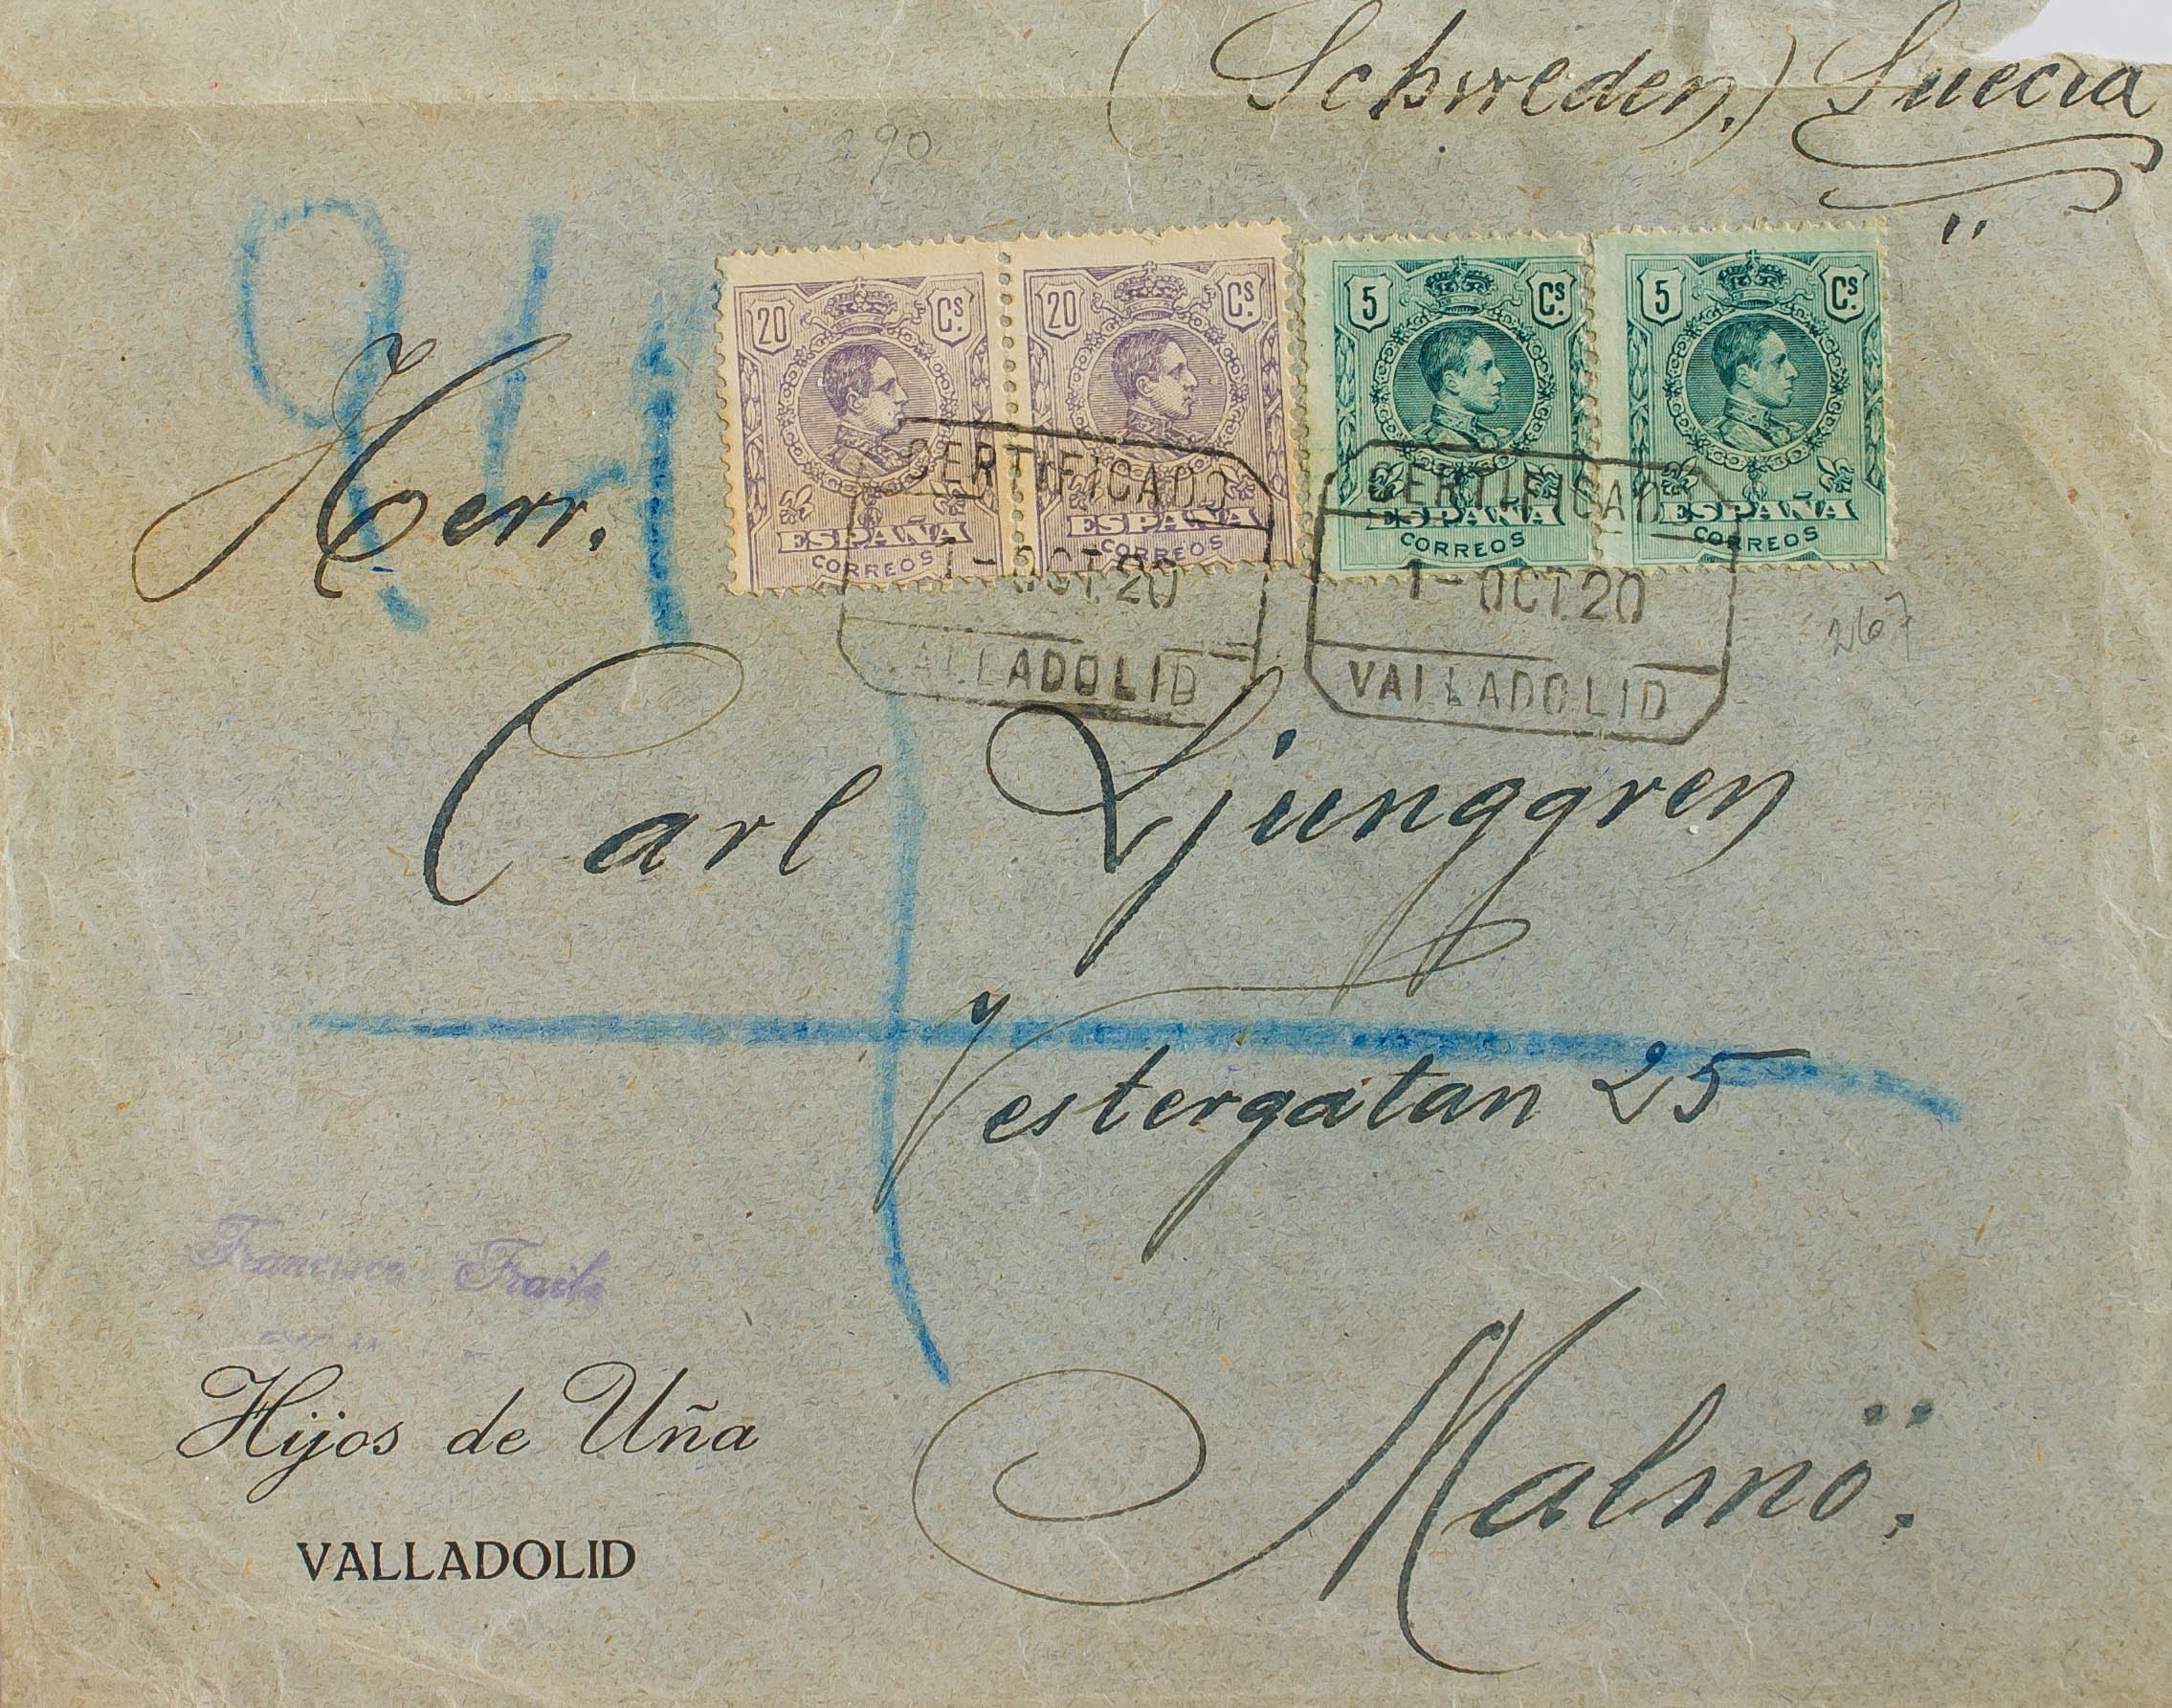 (Schweden.) Suecia
290
20 Cs. 20 Cs. 5 Cs. 5 Cs.
ESPAÑA ESPAÑA ESPAÑA ESPAÑA
CORREOS CORREOS CORREOS CORREOS
CERTIFICADO CERTIFICADO
1-OCT.20 1-OCT.20
VALLADOLID VALLADOLID
267
Herr.
Carl Ljunggren
Vestergatan 25
Malmö.
Francisco Fraile
Hijos de Uña
VALLADOLID